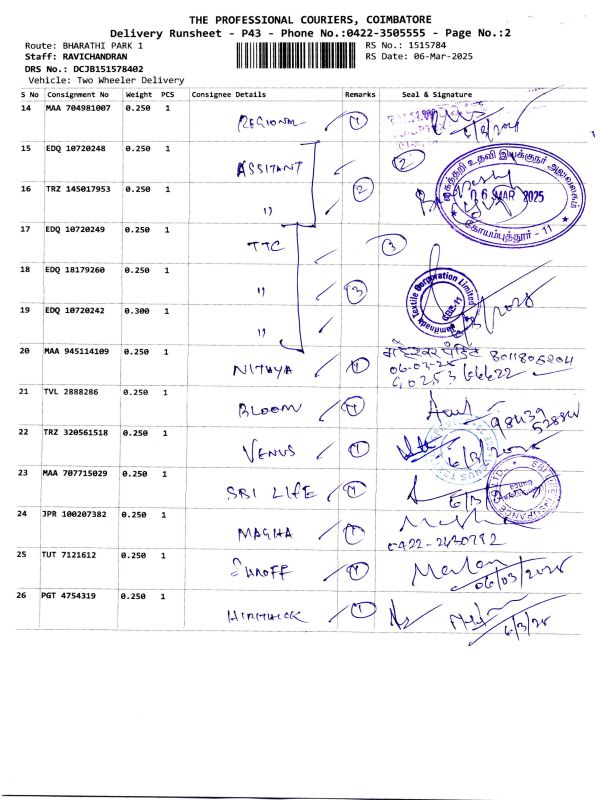 THE PROFESSIONAL COURIERS, COIMBATORE
Delivery Runsheet - P43 - Phone No.:0422-3505555 - Page No.:2
Route: BHARATHI PARK 1 RS No.: 1515784
Staff: RAVICHANDRAN RS Date: 06-Mar-2025
DRS No.: DCJB151578402
Vehicle: Two Wheeler Delivery
S No Consignment No Weight PCS Consignee Details Remarks Seal & Signature
14 MAA 704981007 0.250 1 REGIONAL 1
15 EDQ 10720248 0.250 1 ASSITANT 2
16 TRZ 145017953 0.250 1 " 2
06 MAR 2025
கோயம்புத்தூர் - 11
17 EDQ 10720249 0.250 1 TTC 3
18 EDQ 18179260 0.250 1 " 3
19 EDQ 10720242 0.300 1 "
Tamilnadu Textile Corporation Limited
CBE-11
20 MAA 945114109 0.250 1 NITHYA 1
06-03-25
90253 66622
21 TVL 2888286 0.250 1 BLOOM 1
98439
22 TRZ 320561518 0.250 1 VENUS 1
23 MAA 707715029 0.250 1 SBI LIFE 1
24 JPR 100207382 0.250 1 MAGHA 1
0422-2430792
25 TUT 7121612 0.250 1 SHROFF 1
06/03/2025
26 PGT 4754319 0.250 1 1
6/3/25